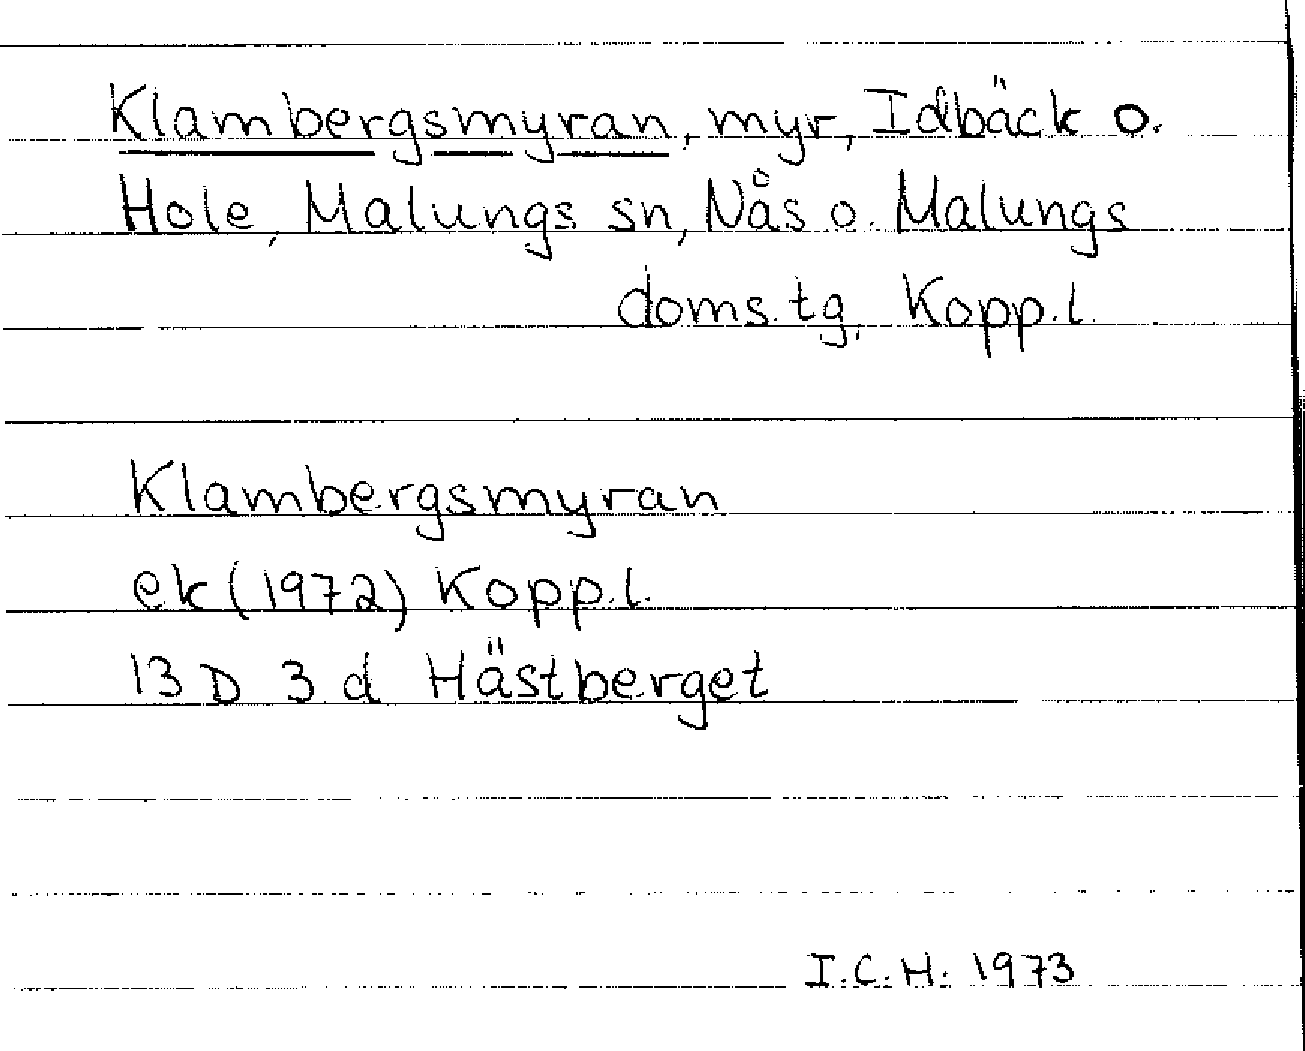 Klambergsmyran, myr, Idbäck o.
Hole, Malungs sn, Nås o. Malungs
doms.tg, Kopp.l.
Klambergsmyran
ek (1972) Kopp.l.
13 D 3 d Hästberget
I.C.H. 1973